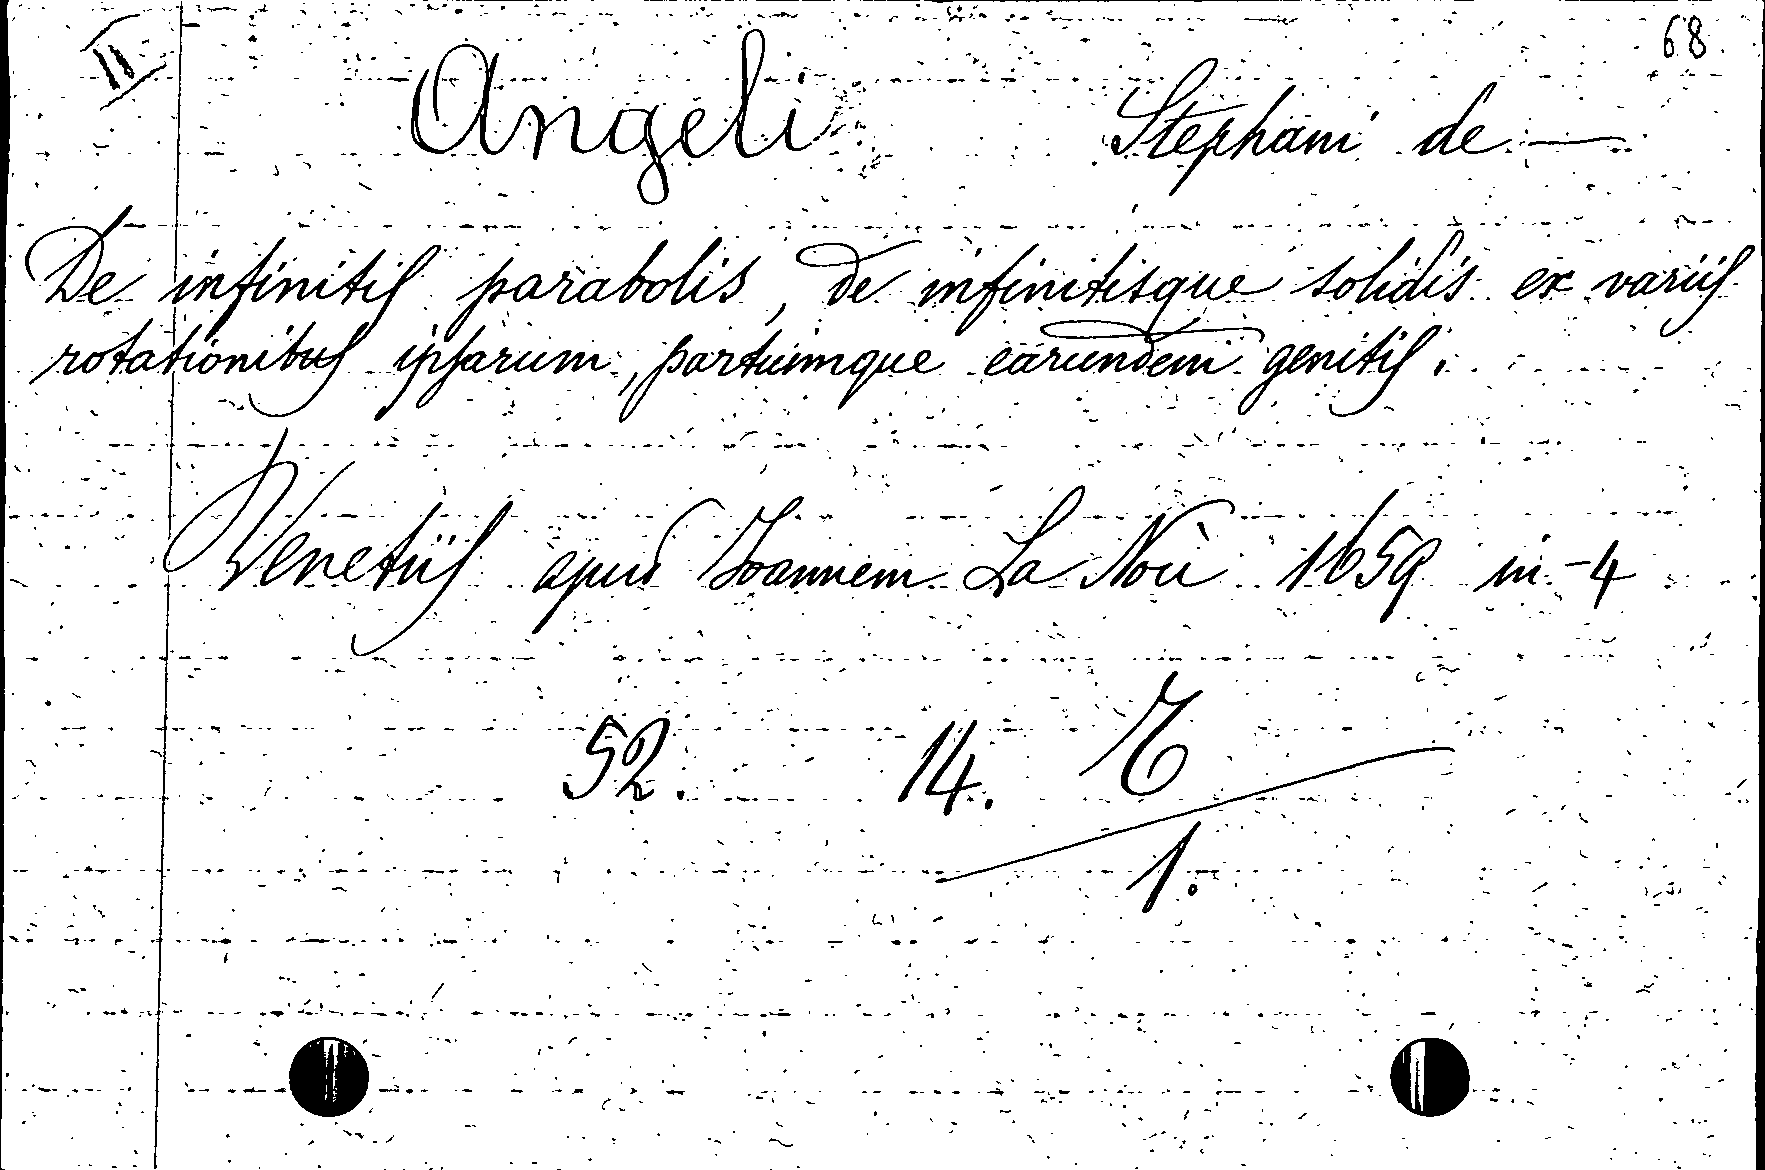 II 68.
Angeli Stephani de —
De infinitis parabolis, de infinitisque solidis ex variis
rotationibus ipsarum, partiumque earundem genitis.
Venetiis apud Joannem La Noù 1659 in-4
52. 14. E
1.